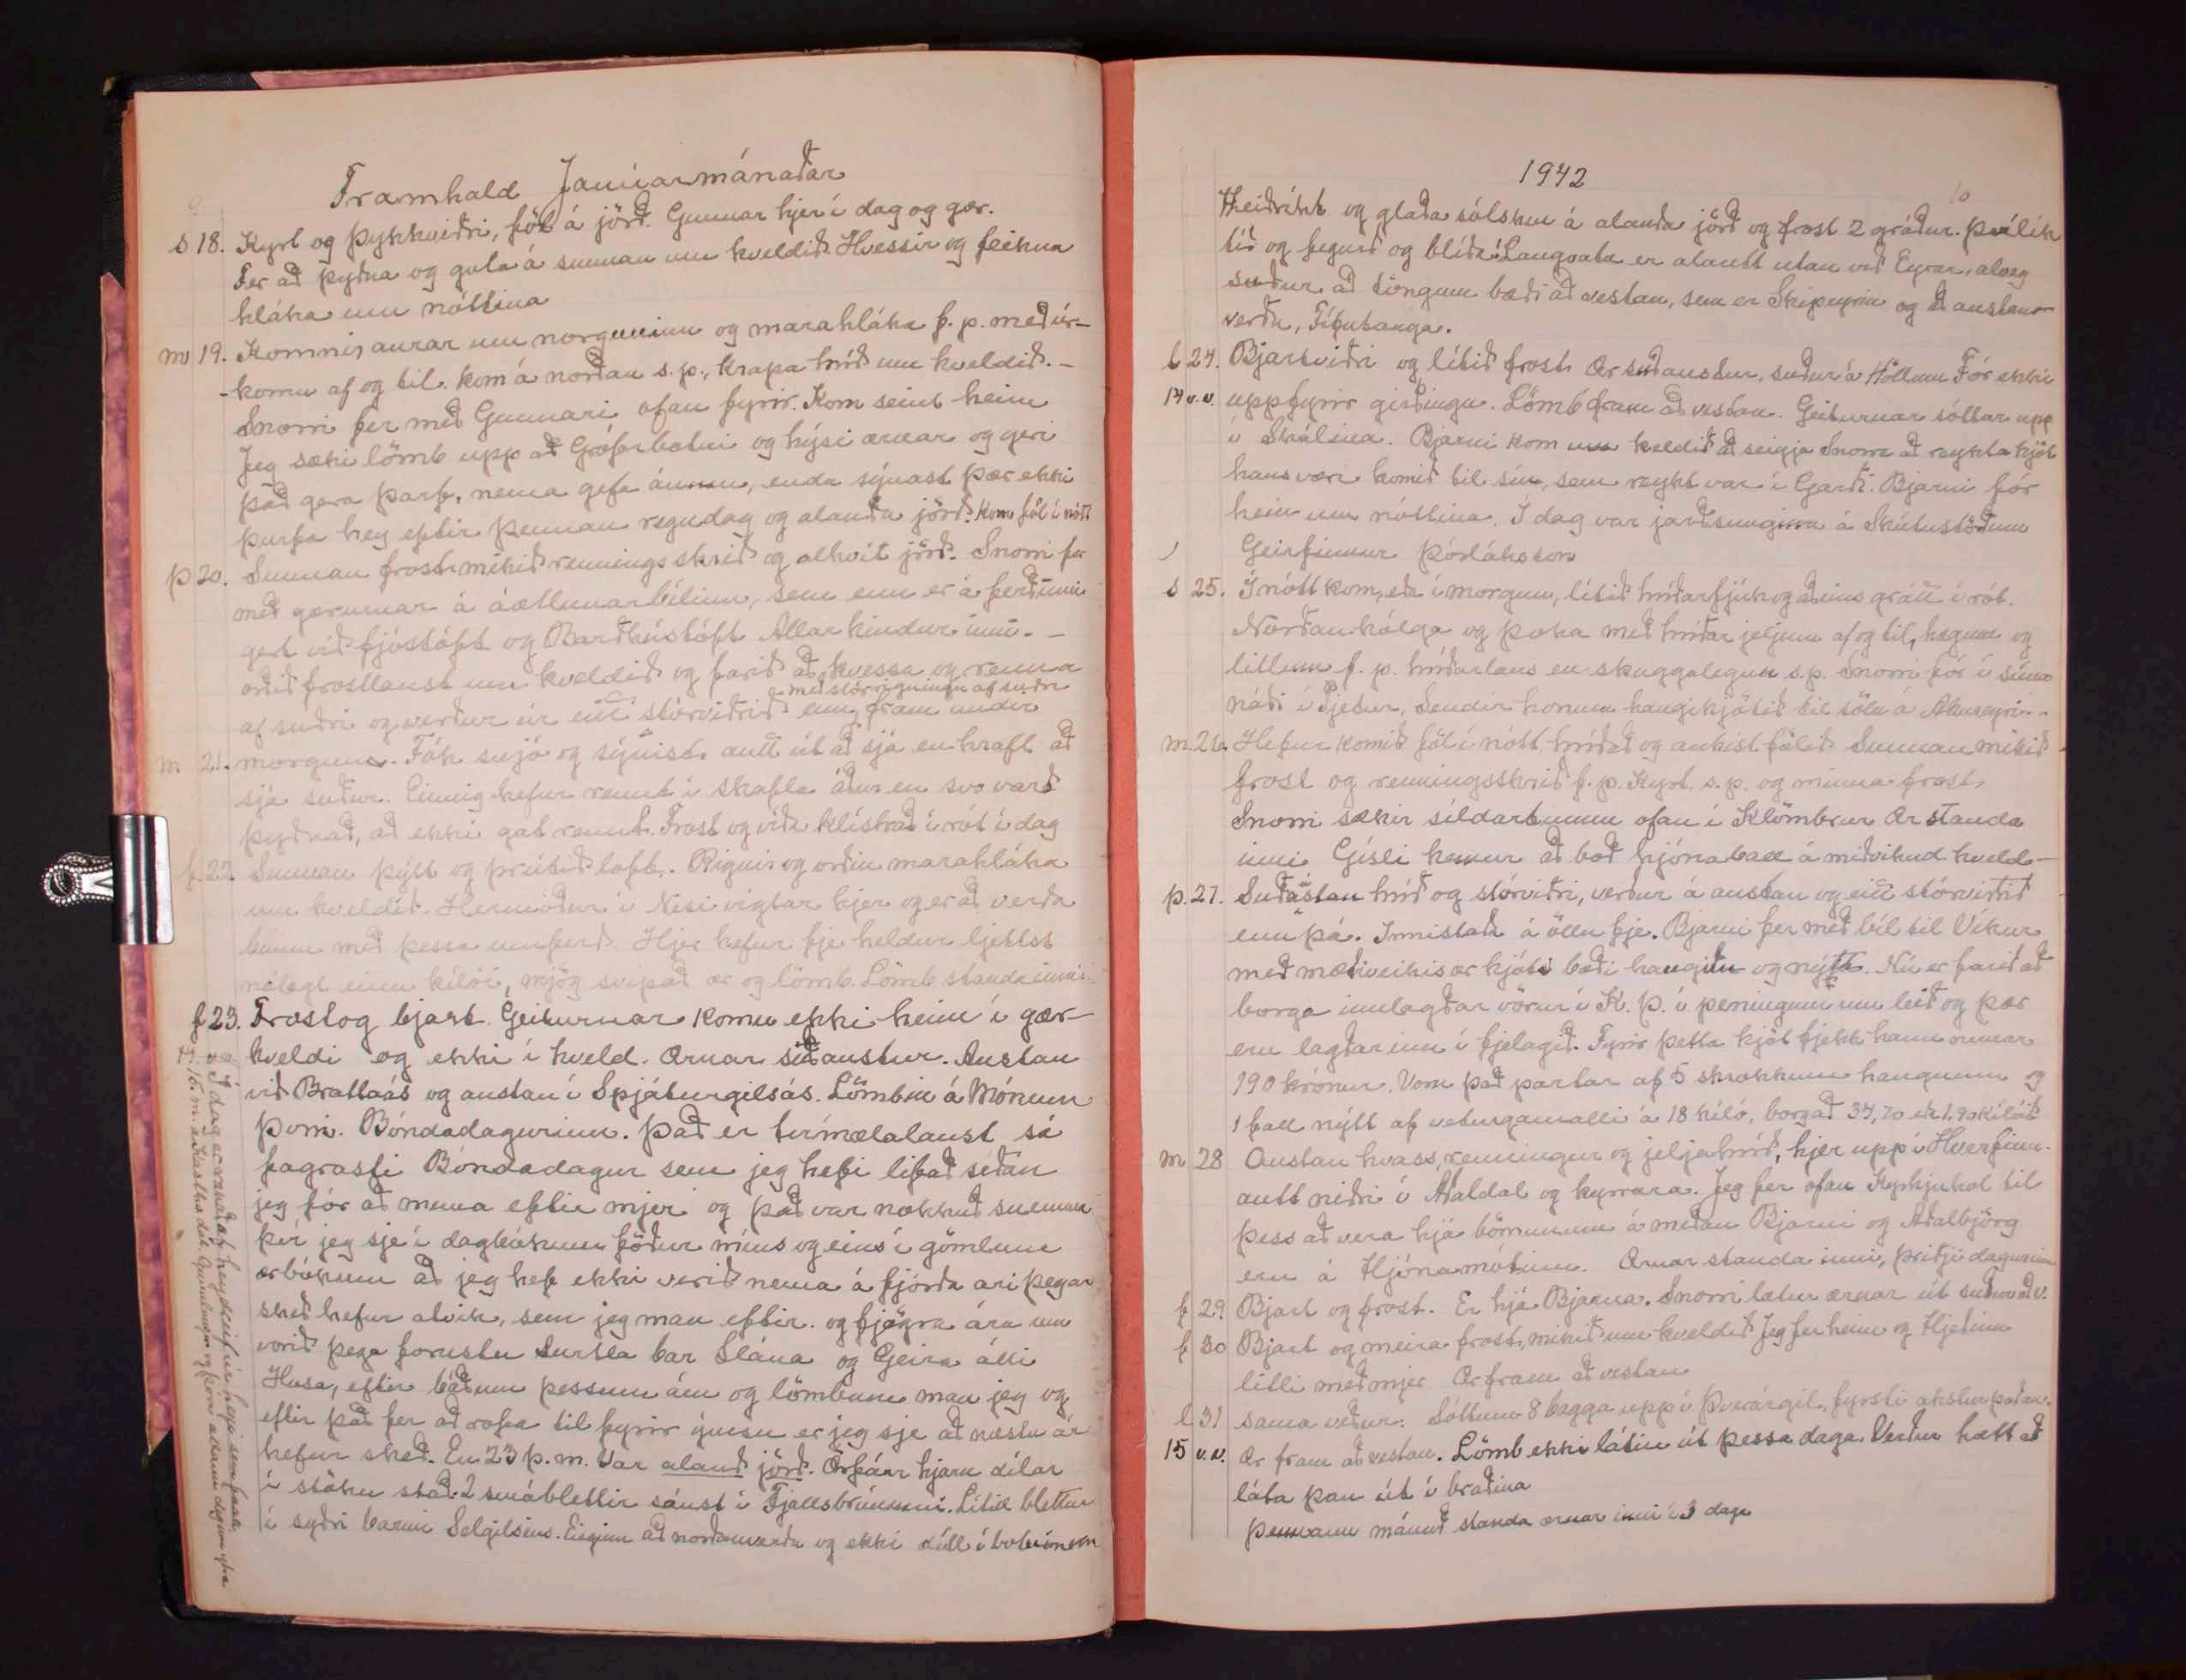 Framhald Janúarmánaðar
s 18. Kyrt og þykkviðri, föl á jörð. Gunnar hjer í dag og gær.
Fer að þyðna og gola á sunnan um kveldið. Hvessir og feikna
hláka um nóttina
m 19. Komnir aurar um morguninn og marahláka f. p. með úr-
-komu af og til. Kom á norðan s. p., krapa hríð um kveldið. -
Snorri fer með Gunnari ofan fyrir. Kom seint heim
Jeg sæki lömb upp að Grófarbotni og hýsi ærnar og geri
það gera þarf, nema gefa ánum, enda sýnast þær ekki
þurfa hey eftir þennan regndag og alauða jörð. Kom föl í nótt
þ 20. Sunnan frost mikið rennings skrið og alhvit jörð. Snorri fer
með gærurnar á áætlunarbílinn, sem enn er á ferðinni
gert við fjóstóft og Barðhústóft Allar kindur inni. -
orðið frostlaust um kveldið og farið að hvessa og renna
með stórrigningu af suðri
af suðri og verður úr eitt stórviðrið enn, fram undir
m 21. morguns. Tók snjó og sýnist autt út að sjá en kraft að
sjá suður. Einnig hefur rennt í skafla áður en svo varð
þyðnað, að ekki gat rennt. Frost og víða klístrað í rót í dag
f. 22. Sunnan þýtt og prútið loft. Rignir og orðin marahláka
um kveldið. Hermóður í Nesi vigtar hjer og er að verða
búinn með þessa umferð. Hjer hefur fje heldur ljetst
nálægt einu kílói, mjög svipað ær og lömb. Lömb standa inni.
f 23. Frost og bjart. Geiturnar komu ekki heim í gær-
kveldi og ekki í kveld. Ærnar suðaustur. Austan
við Brattaás og austan í Spjáturgilsás. Lömbin á Mónum
Þorri. Bóndadagurinn. Það er tvímælalaust sá
fagrasti Bóndadagur sem jeg hefi lifað síðan
jeg fór að muna eftir mjer og það var nokkuð snemma
því jeg sje í dagbókum föður míns og eins í gömlum
ærbókum að jeg hef ekki verið nema á fjórða ári þegar
skeð hefur atvik, sem jeg man eftir. og fjögra ára um
vorið þega forustu Surtla bar Slána og Geira átti
Husa, eftir báðum þessum ám og lömbum man jeg og
eftir það fer að rofa til fyrir ýmsu er jeg sje að næstu ár
hefur skeð. En 23 þ. m. var alauð jörð. Örfáar hjarn dílar
í stöku stað. 2 smáblettir sáust í Fjallsbrúninni. Lítill blettur
í syðri barmi Selgilsins. Eiginn að norðanverðu og ekki díll í botninum
1942
10
Heiðríkt og glaða sólskin á alauða jörð og frost 2 gráður. Þvílík
tíð og fegurð og blíða! Langvatn er alautt utan við Eyrar, alveg
suður að töngum bæði að vestan, sem er Skipeyrin og að austan-
verðu, Fífutanga.
l 24. Bjartviðri og lítið frost. Ær suðaustur, suður á Höllum Fór ekki
14 v.v. uppfyrir girðingu. Lömb fram að vestan. Geiturnar sóttar upp
í Skálina. Bjarni kom um kveldið að seigja Snorra að reykta kjöt
hans væri komið til sín, sem reykt var í Garði. Bjarni fór
heim um nóttina. Í dag var jarðsunginn á Skútustöðum
Geirfinnur Þorláksson
s 25. Í nótt kom, eða í morgun, lítið hríðarfjúk og aðeins grátt í rót.
Norðan kólga og þoka með hríðar jeljum af og til, hægum og
litlum f. p. hríðarlaus en skuggalegur s. p. Snorri fór í síma
náði í Pjetur, Sendir honum hangikjötið til sölu á Akureyri. -
m. 26. Hefur komið föl í nótt, hríðað og aukist fölið Sunnan mikið
frost og renningsskrið f. p. Kyrt. s. p. og minna frost.
Snorri sækir síldartunnu ofan í Klömbrur Ær standa
inni Gísli kemur að boð hjónaball á miðvikud. kveld -
þ. 27. Suðaustan hríð og stórviðri, verður á austan og eitt stórviðrið
enn þá. Innistaða á öllu fje. Bjarni fer með bíl til Víkur
með mæðiveikis ær kjöts bæði hangið og nýtt. Nú er farið að
borga innlagðar vörur í K. Þ. í peningum um leið og þær
eru lagðar inn í fjelagið. Fyrir þetta kjöt fjekk hann rúmar
190 krónur. Voru það partar af 5 skrokkum hangnum og
1 fall nýtt af veturgamalli á 18 kíló, borgað 34,20 eða 1.90 kílóið
m 28 Austan hvass, renningur og jeljahríð, hjer upp í Hverfinu.
autt niðri í Aðaldal og kyrrara. Jeg fer ofan Kyrkjuhol til
þess að vera hjá börnunum á meðan Bjarni og Aðalbjörg
eru á Hjónamótinu. Ærnar standa inni, þriðji dagurinn
f 29 Bjart og frost. Er hjá Bjarna. Snorri lætur ærnar út suður að v.
f 30 Bjart og meira frost, mikið um kveldið Jeg fer heim og Hjeðinn
litli með mjer Ær fram að vestan
l 31 sama veður: Sóttum 8 bagga upp í Þverárgil, fyrsti akstur þaðan.
15 v.v. Ær fram að vestan. Lömb ekki látin út þessa daga. Verður hætt að
láta þau út í bráðina
Þennann mánuð standa ærnar inni í 3 daga